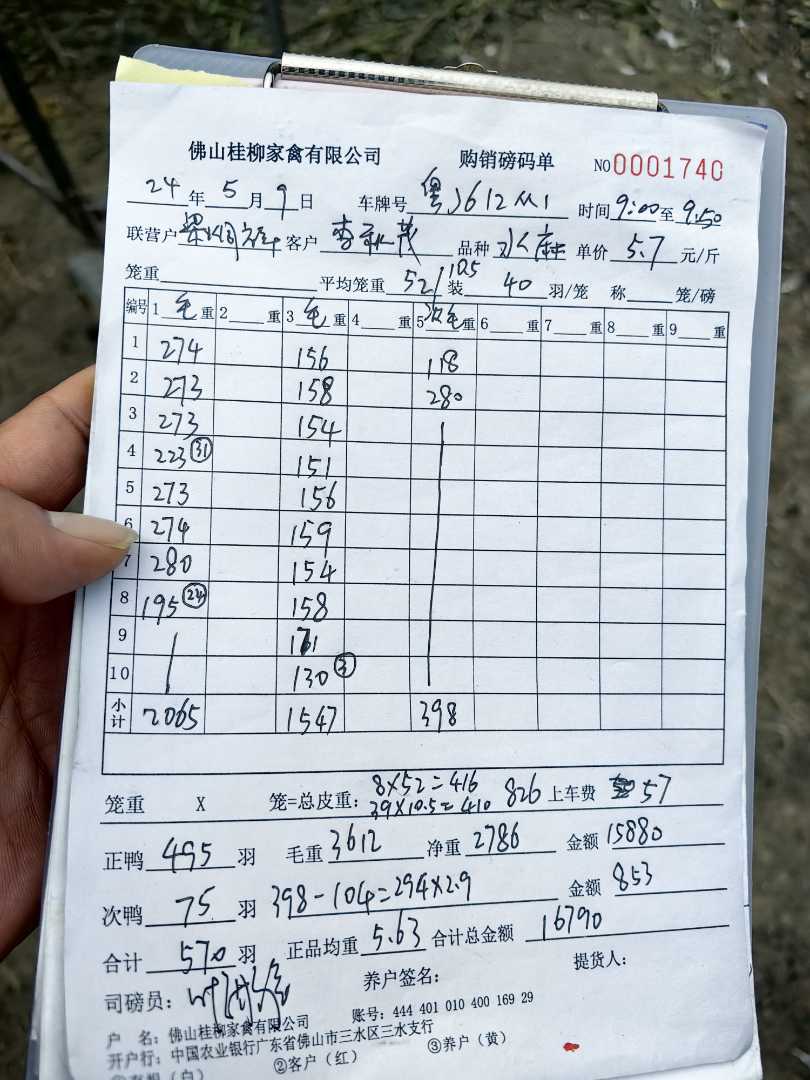 佛山桂柳家禽有限公司 购销磅码单 NO 0001740
24年5月9日 车牌号 粤J612 时间9:00至9.50
联营户 客户 李 茂 品种 水 单价5.7元/斤
笼重 平均笼重52/10.5装40羽/笼 称 笼/磅
编号 1毛重 2重 3毛重 4重 5次毛重 6重 7重 8重 9重
1 274 156 118
2 273 158 280
3 273 154
4 223㉛ 151
5 273 156
6 274 159
7 280 154
8 195㉔ 158
9 171
10 130③
小计 2065 1547 398
笼重 X 笼=总皮重: 8×52=416 39×10.5=410 826 上车费 57
正鸭495羽 毛重3612 净重2786 金额15880
次鸭75羽 398-104=294×2.9 金额853
合计570羽 正品均重5.63 合计总金额16790
司磅员: 养户签名: 提货人:
户 名: 佛山桂柳家禽有限公司 账号: 444 401 010 400 169 29
开户行: 中国农业银行广东省佛山市三水区三水支行
②客户（红） ③养户（黄）